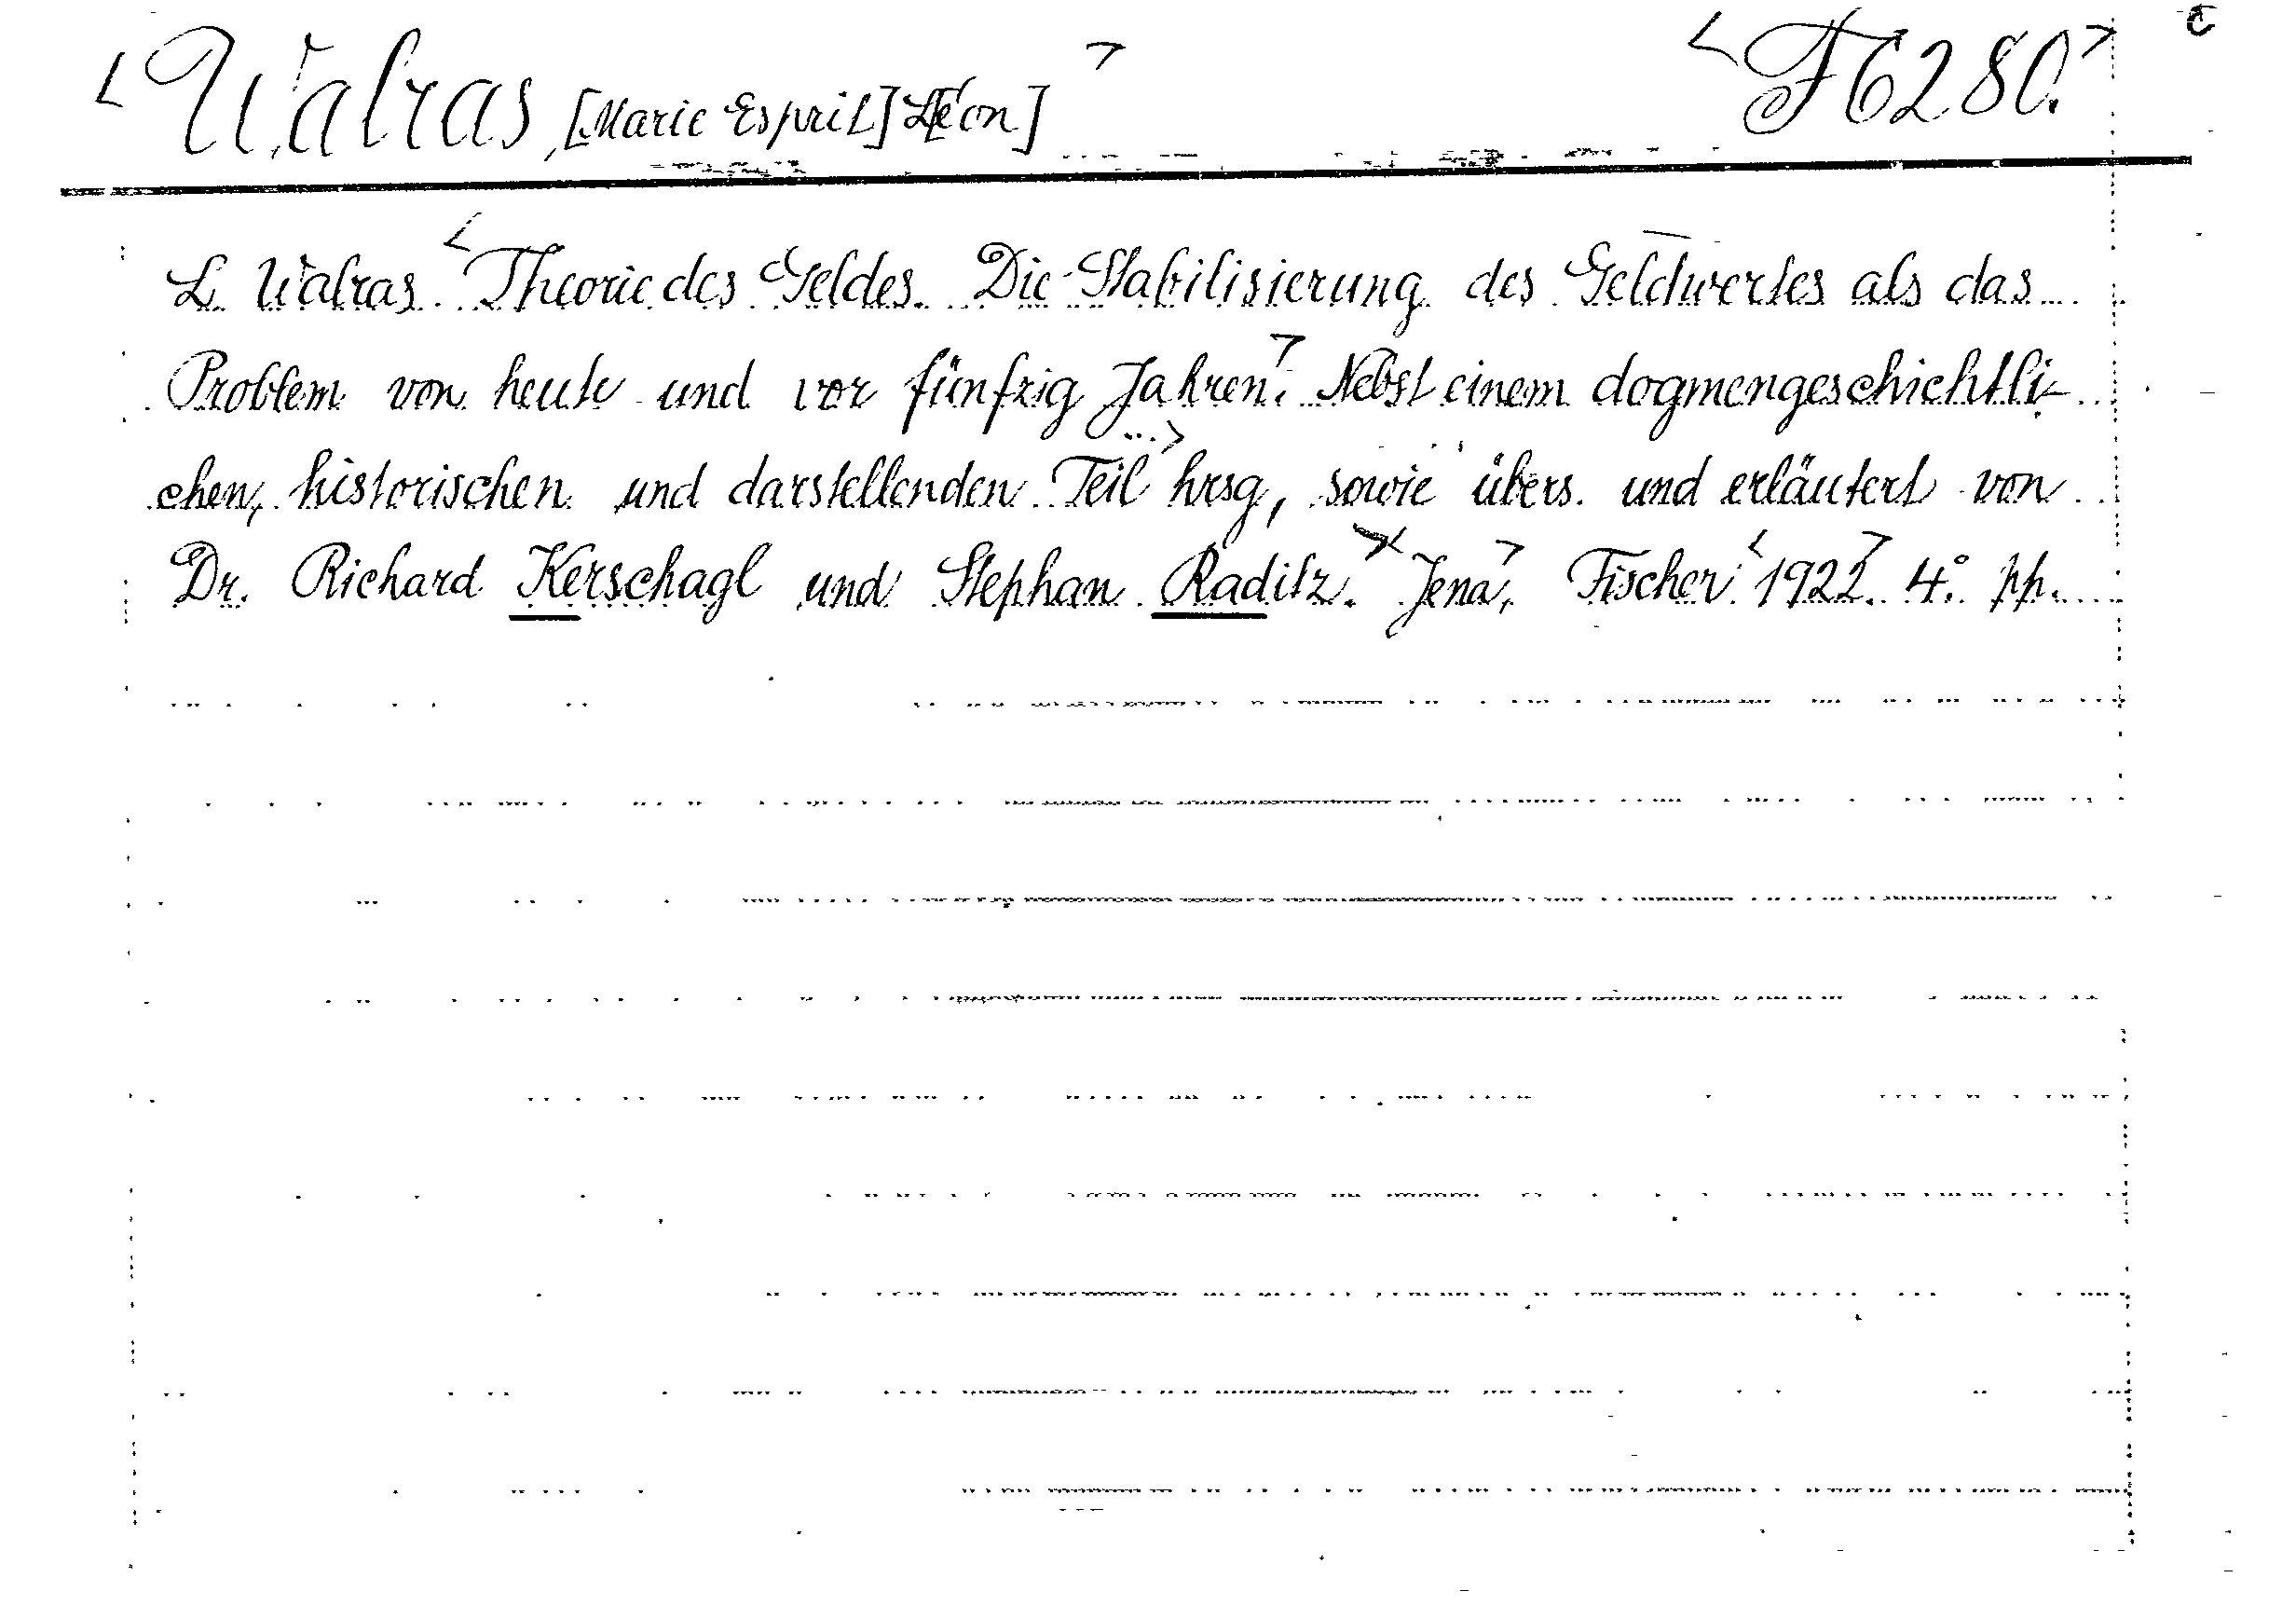 <Walras, [Marie Esprit] L[éon]> <F6280.> c
L. Walras. <Theorie des Geldes. Die Stabilisierung des Geldwertes als das
Problem von heute und vor fünfzig Jahren>. Nebst einem dogmengeschichtli-
chen, historischen und darstellenden Teil ...> hrsg, sowie übers. und erläutert von
Dr. Richard Kerschagl und Stephan Raditz. Jena>, Fischer <1922>. 4°. pp.